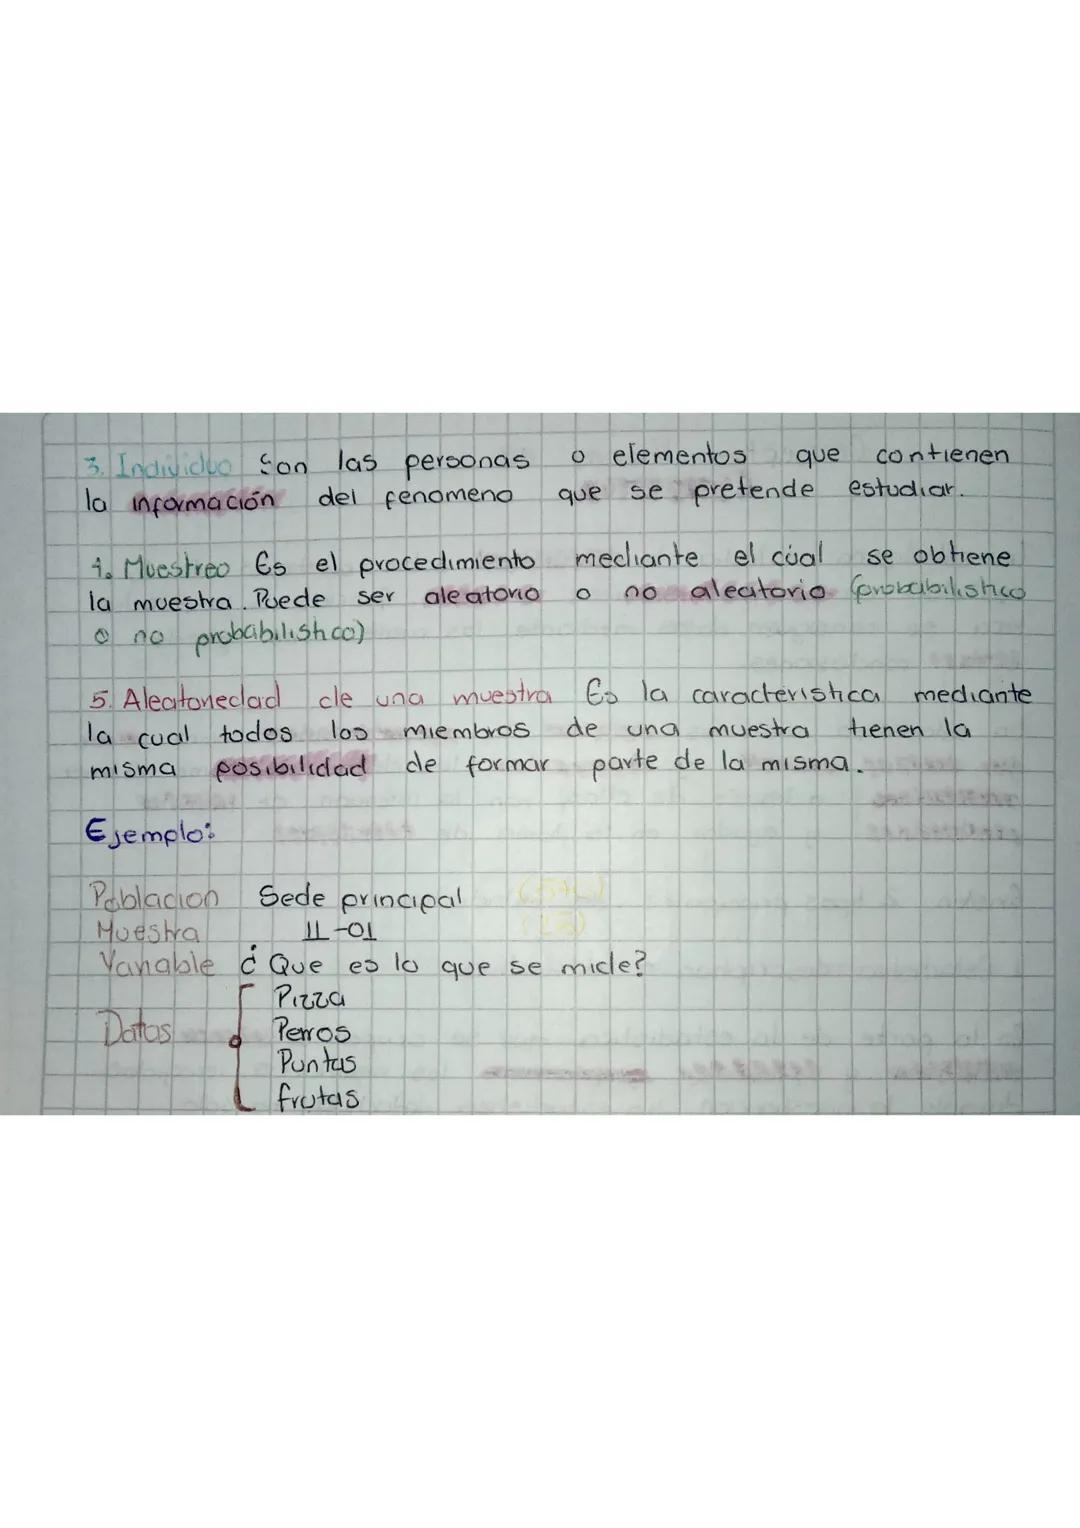 3. Individuo Son las personas o elementos que contienen
la información del fenomeno que se pretende estudiar.
4. Muestreo Es el procedimiento mediante el cúal se obtiene
la muestra. Puede ser aleatorio o no aleatorio (probabilistico
o no probabilistico)
5. Aleatoriedad de una muestra Es la caracteristica mediante
la cual todos los miembros de una muestra tienen la
misma posibilidad de formar parte de la misma.
Ejemplo:
Poblacion Sede principal
Muestra 11-01
Variable ¿Que es lo que se mide?
Pizza
Datos Perros
Puntas
frutas